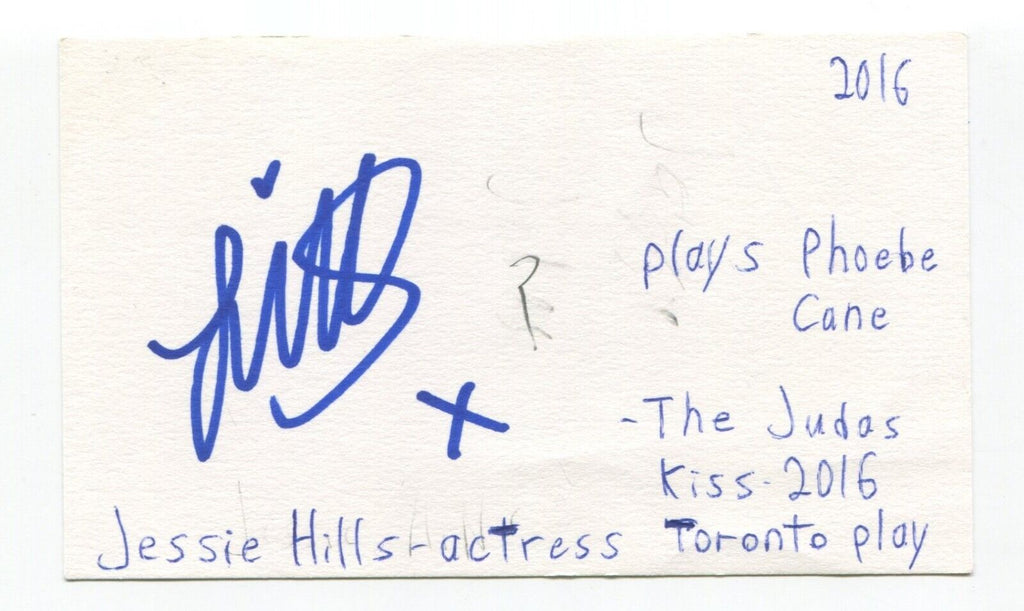 2016
plays Phoebe
Cane
x
-The Judas
Kiss-2016
Jessie Hills-actress Toronto play